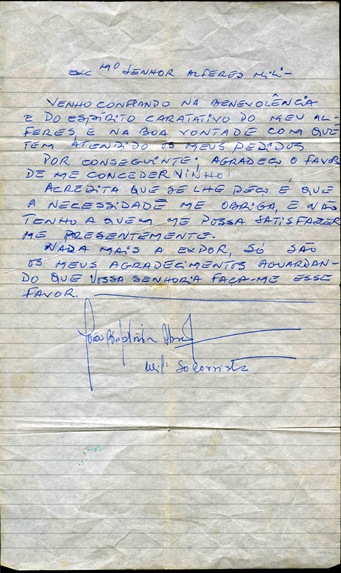 EXC Mº SENHOR ALFERES MILI-
VENHO CONFIANDO NA BENEVOLÊNCIA
E DO ESPÍRITO CARATATIVO DO MEU AL-
FERES, E NA BOA VONTADE COM QUE
TEM ATENDIDO OS MEUS PEDIDOS
POR CONSEGUINTE; AGRADEÇO O FAVOR
DE ME CONCEDER VINHO!
ACREDITA QUE SE LHE PEÇO É QUE
A NECESSIDADE ME OBRIGA, E NÃO
TENHO A QUEM ME POSSA SATISFAZER
ME PRESENTEMENTE.
NADA MAIS A EXPOR, SÓ SÃO
OS MEUS AGRADECIMENTOS AGUARDAN-
DO QUE VOSSA SENHORIA FAÇA-ME ESSE
FAVOR.
João Baptista
Milº Socorrista